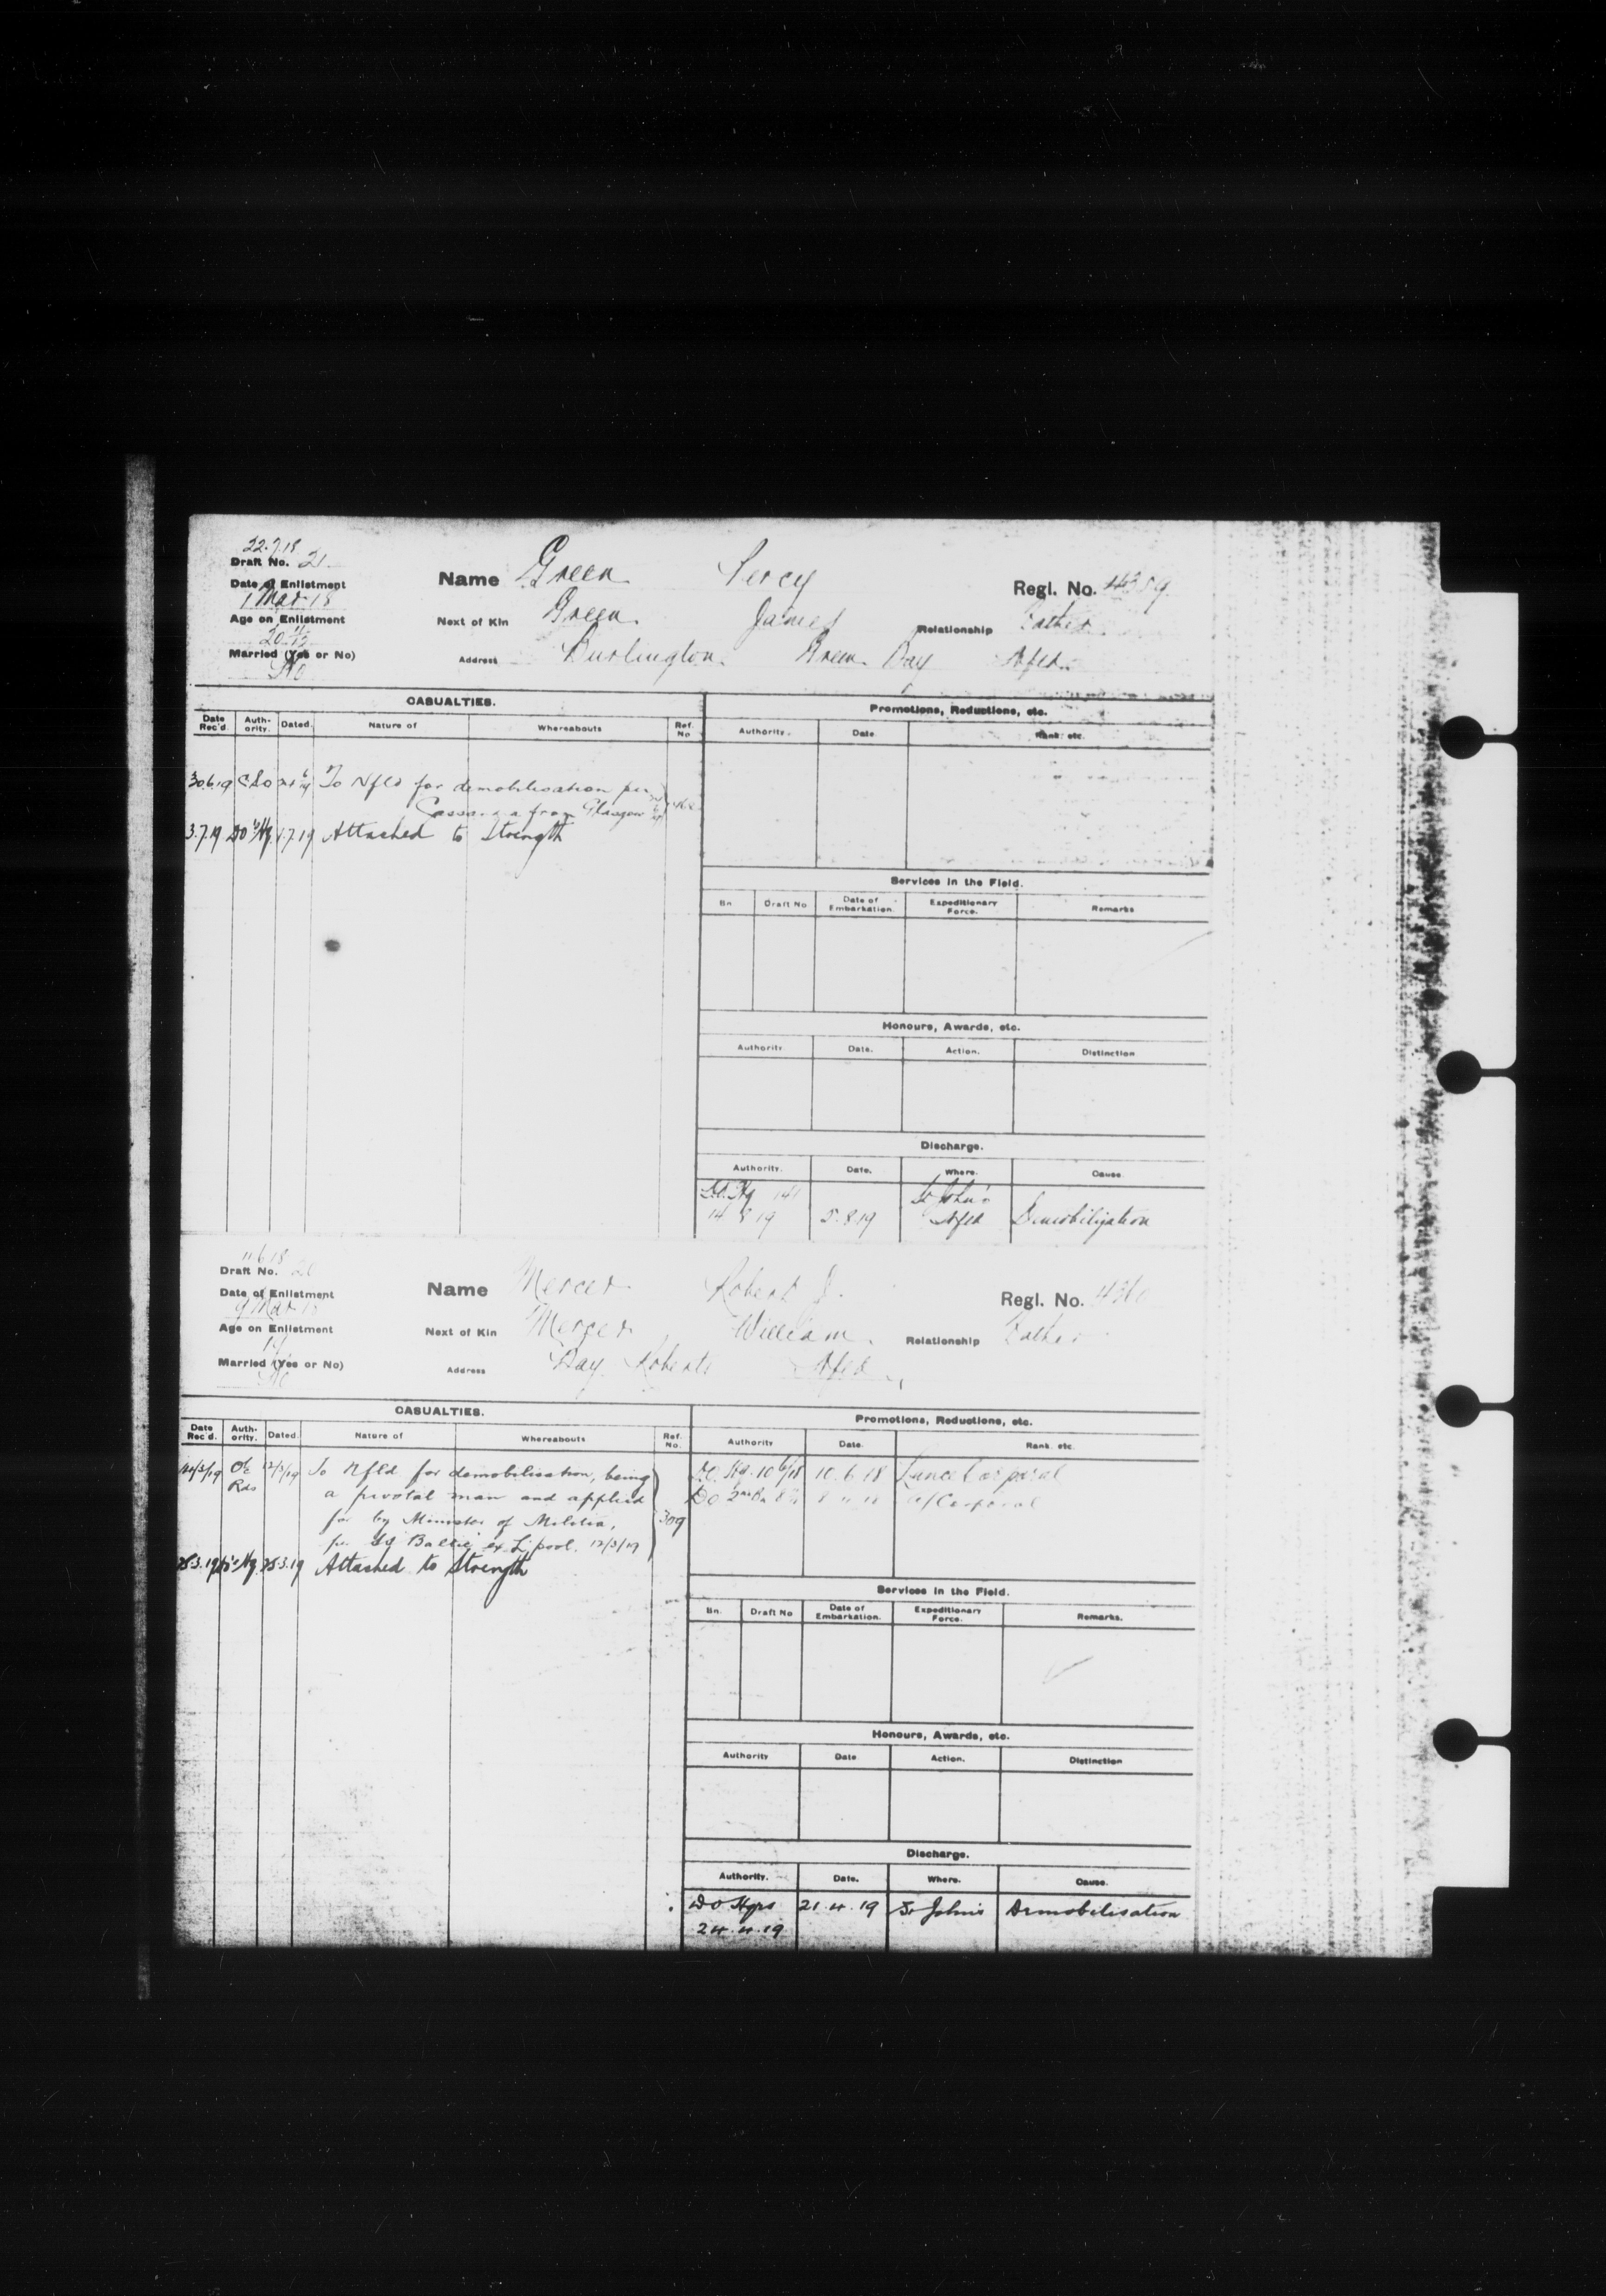 22.7.18
Draft No. 21
Date of Enlistment
1 Mar 18
Age on Enlistment
20
Married (Yes or No)
No
Name Green Percy Regl. No. 4359
Next of Kin Green James Relationship Father
Address Burlington Green Bay Nfld.
CASUALTIES.
Date Rec'd. Auth-ority. Dated. Nature of Whereabouts Ref. No
30.6.19 To Nfld for demobilisation per
Cassandra from Glasgow
3.7.19 DO Hq 1.7.19 Attached to Strength
Promotions, Reductions, etc.
Authority. Date Rank. etc.
Services in the Field.
Bn Draft No Date of Embarkation. Expeditionary Force. Remarks
Honours, Awards, etc.
Authority Date. Action. Distinction
Discharge.
Authority. Date. Where. Cause.
D.O. Hq 141 St John's
14 8 19 5.8.19 Nfld Demobilization
11.6.18
Draft No. 20
Date of Enlistment
9 Mar 18
Age on Enlistment
19
Married (Yes or No)
No
Name Mercer Robert J. Regl. No. 4360
Next of Kin Mercer William. Relationship Father
Address Bay Roberts Nfld
CASUALTIES.
Date Rec'd. Auth-ority. Dated. Nature of Whereabouts Ref. No.
O/c Rds 12/3/19 To Nfld for demobilisation, being
a pivotal man and applied
for by Minister of Militia, 309
per Gg Baltic ex L'pool. 12/3/19
25.3.19 Hq 25.3.19 Attached to Strength
Promotions, Reductions, etc.
Authority Date. Rank. etc.
D.O. Hq. 10 6/18 10.6.18 Lance Corporal
DO 2nd Bn A/Corporal
Services in the Field.
Bn. Draft No Date of Embarkation. Expeditionary Force. Remarks.
Honours, Awards, etc.
Authority Date Action. Distinction
Discharge.
Authority. Date. Where. Cause.
DO Hqrs 21.4.19 St John's Demobilisation
24.4.19